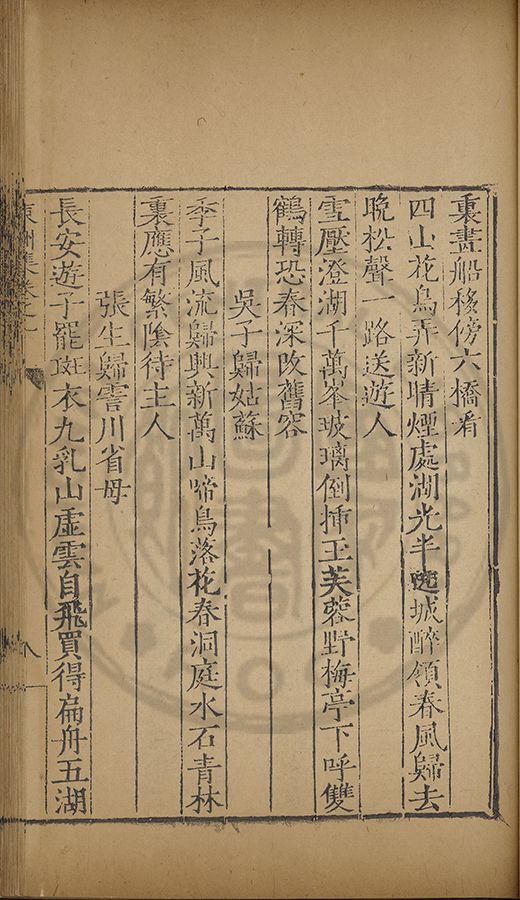 裏畫船移傍六橋看
四山花鳥弄新晴煙處湖光半遶城醉領春風歸去
晚松聲一路送遊人
雪壓澄湖千萬峯玻璃倒揷玉芙蓉野梅亭下呼雙
鶴轉恐春深改舊容
吳子歸姑蘇
季子風流歸興新萬山啼鳥落花春洞庭水石青林
裏應有繁陰待主人
張生歸霅川省母
長安遊子罷斑衣九乳山虛雲自飛買得扁舟五湖
集卷之九
八